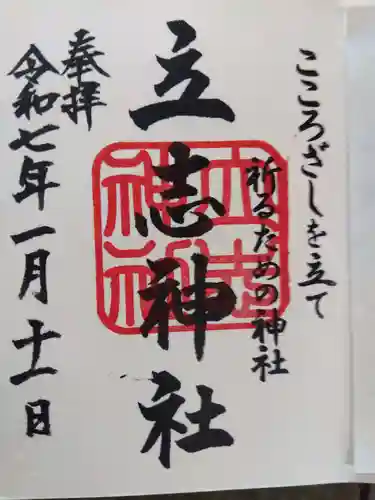 こころざしを立て
祈るための神社
立志神社
奉拝
令和七年一月十一日
立志神社